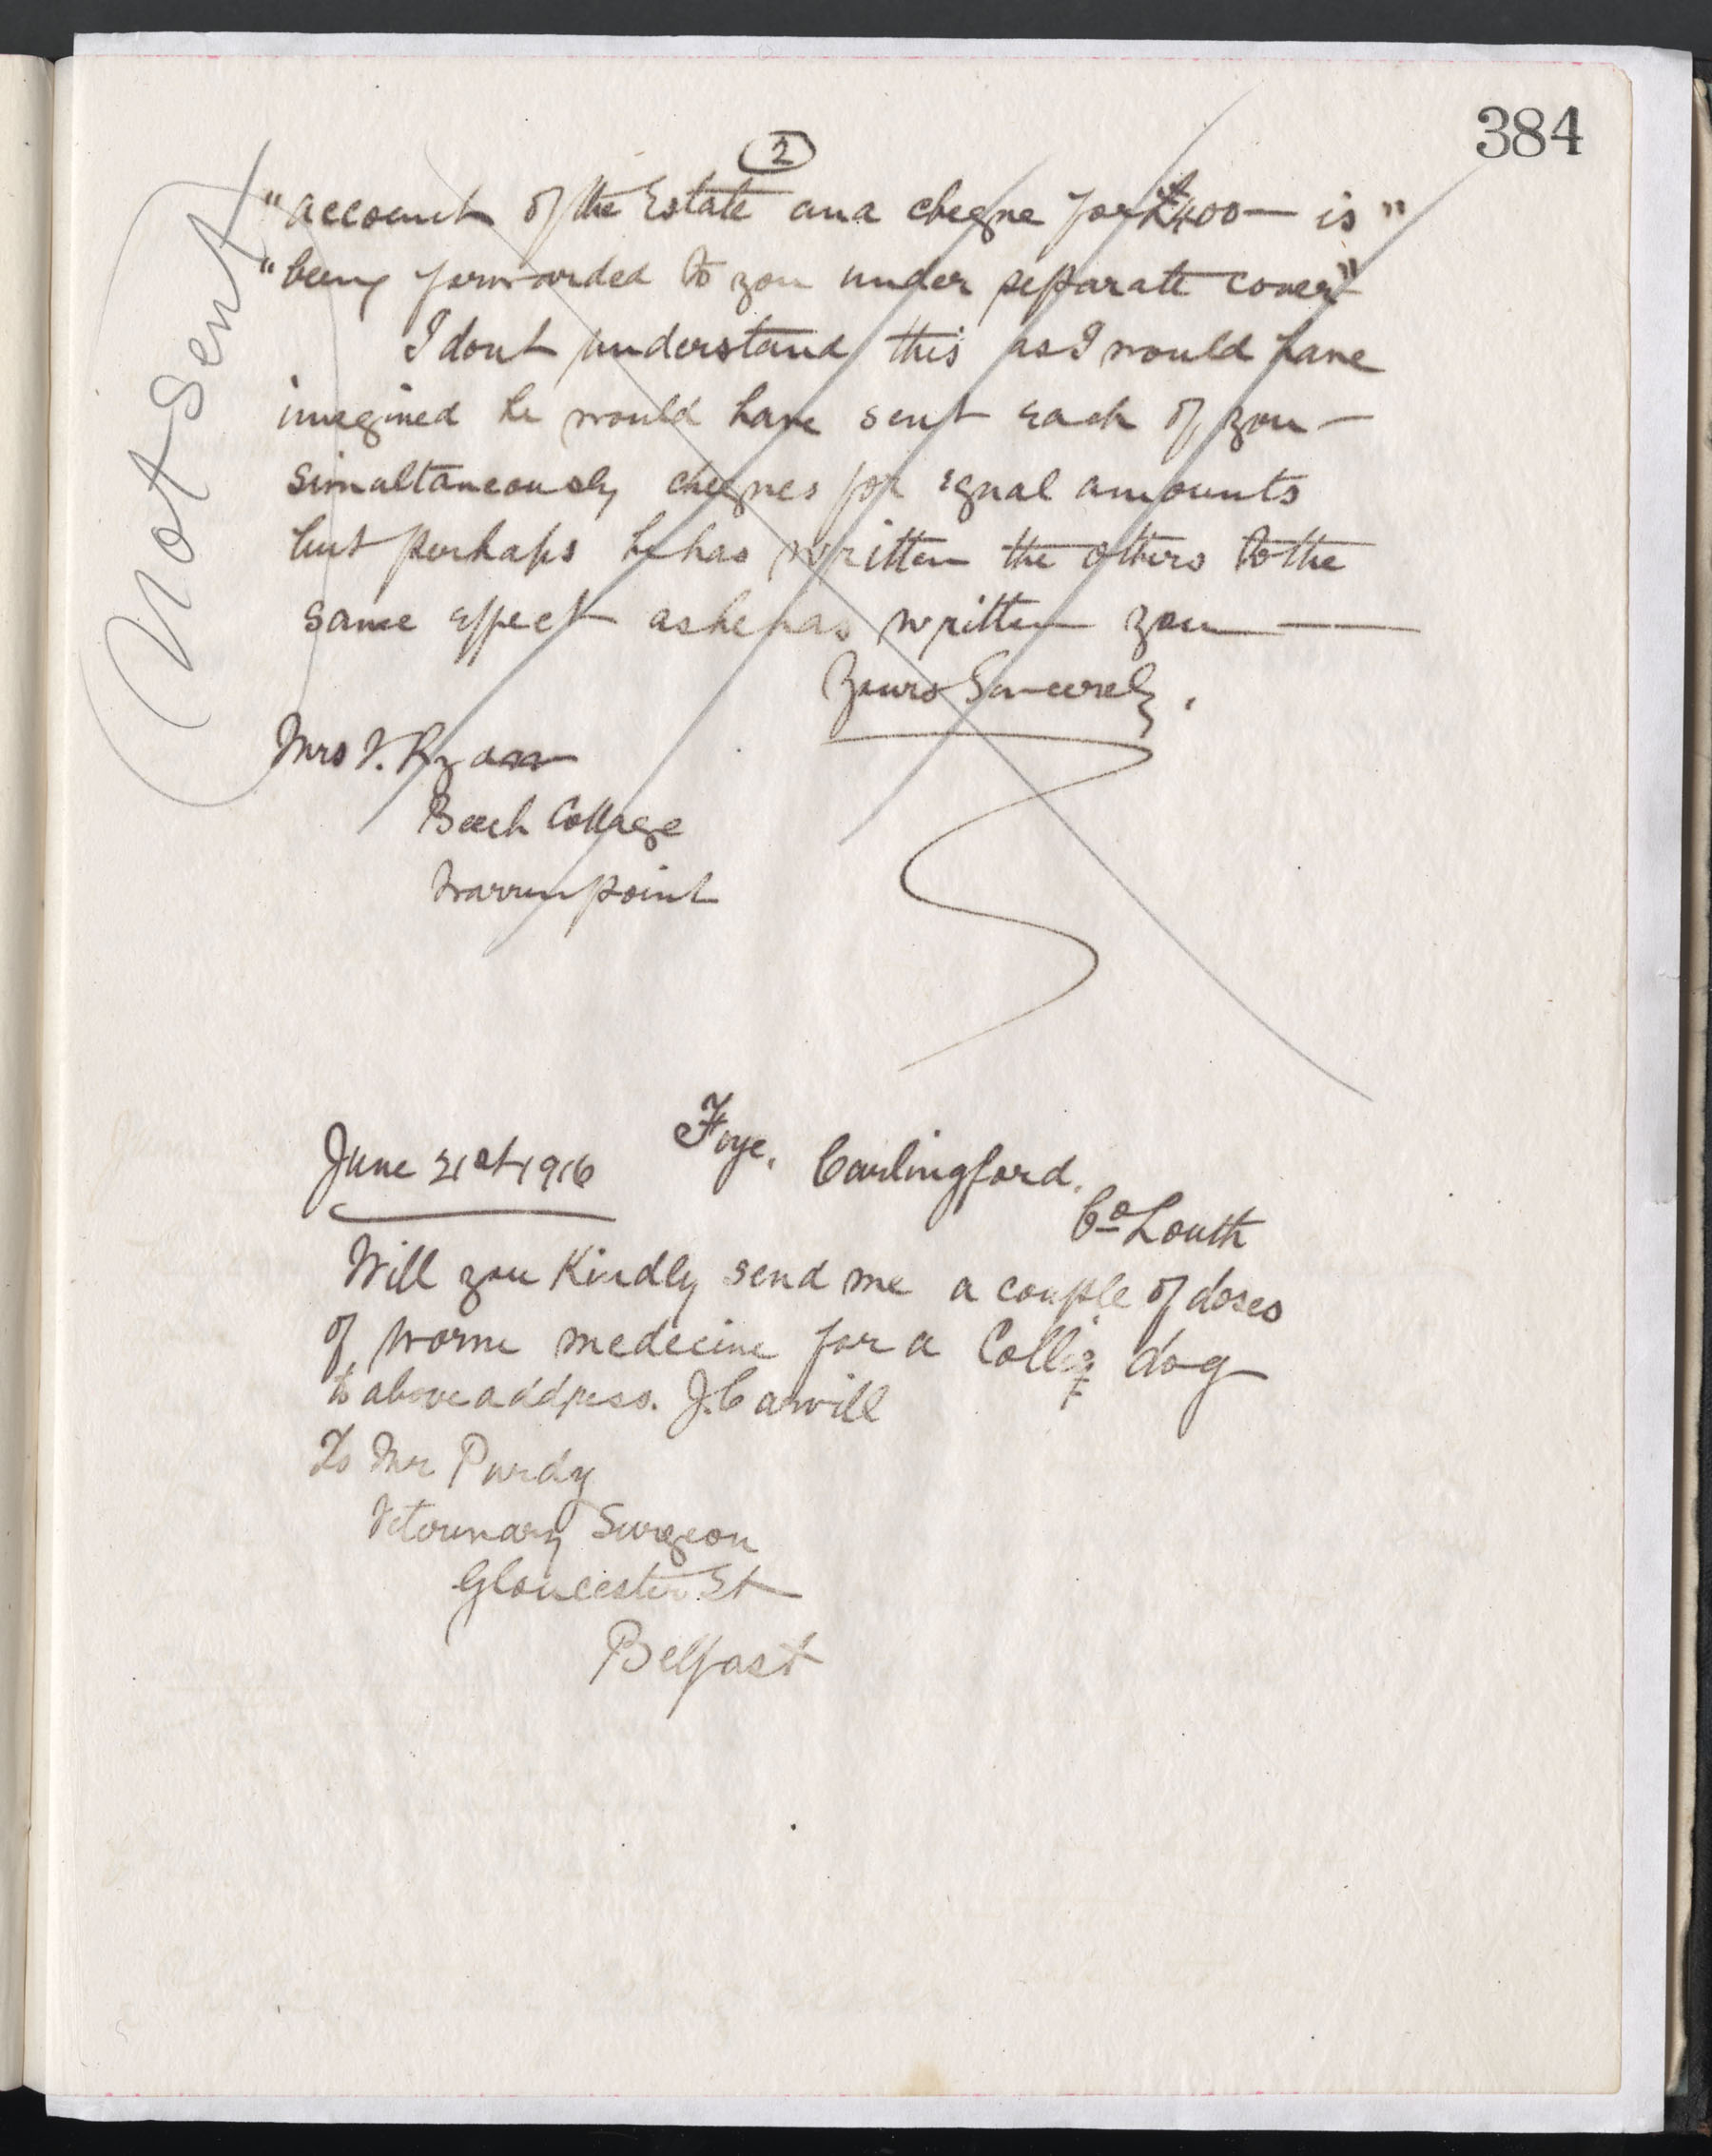 384
2
Not sent
"account of the Estate and cheque for £400 — is"
"being forwarded to you under separate cover"
I dont understand this as I would have
imagined he would have sent each of you —
simultaneously cheques for equal amounts
but perhaps he has written the others to the
same effect as he has written you —
Yours Sincerely.
Mrs V. Ryan
Beech Cottage
Warrenpoint
June 21st 1916 Foye, Carlingford.
Co Louth
Will you Kindly send me a couple of doses
of worm medecine for a Collie dog
to above address. J. Carvill
To Mr Purdy
Veterinary Surgeon
Gloucester St
Belfast